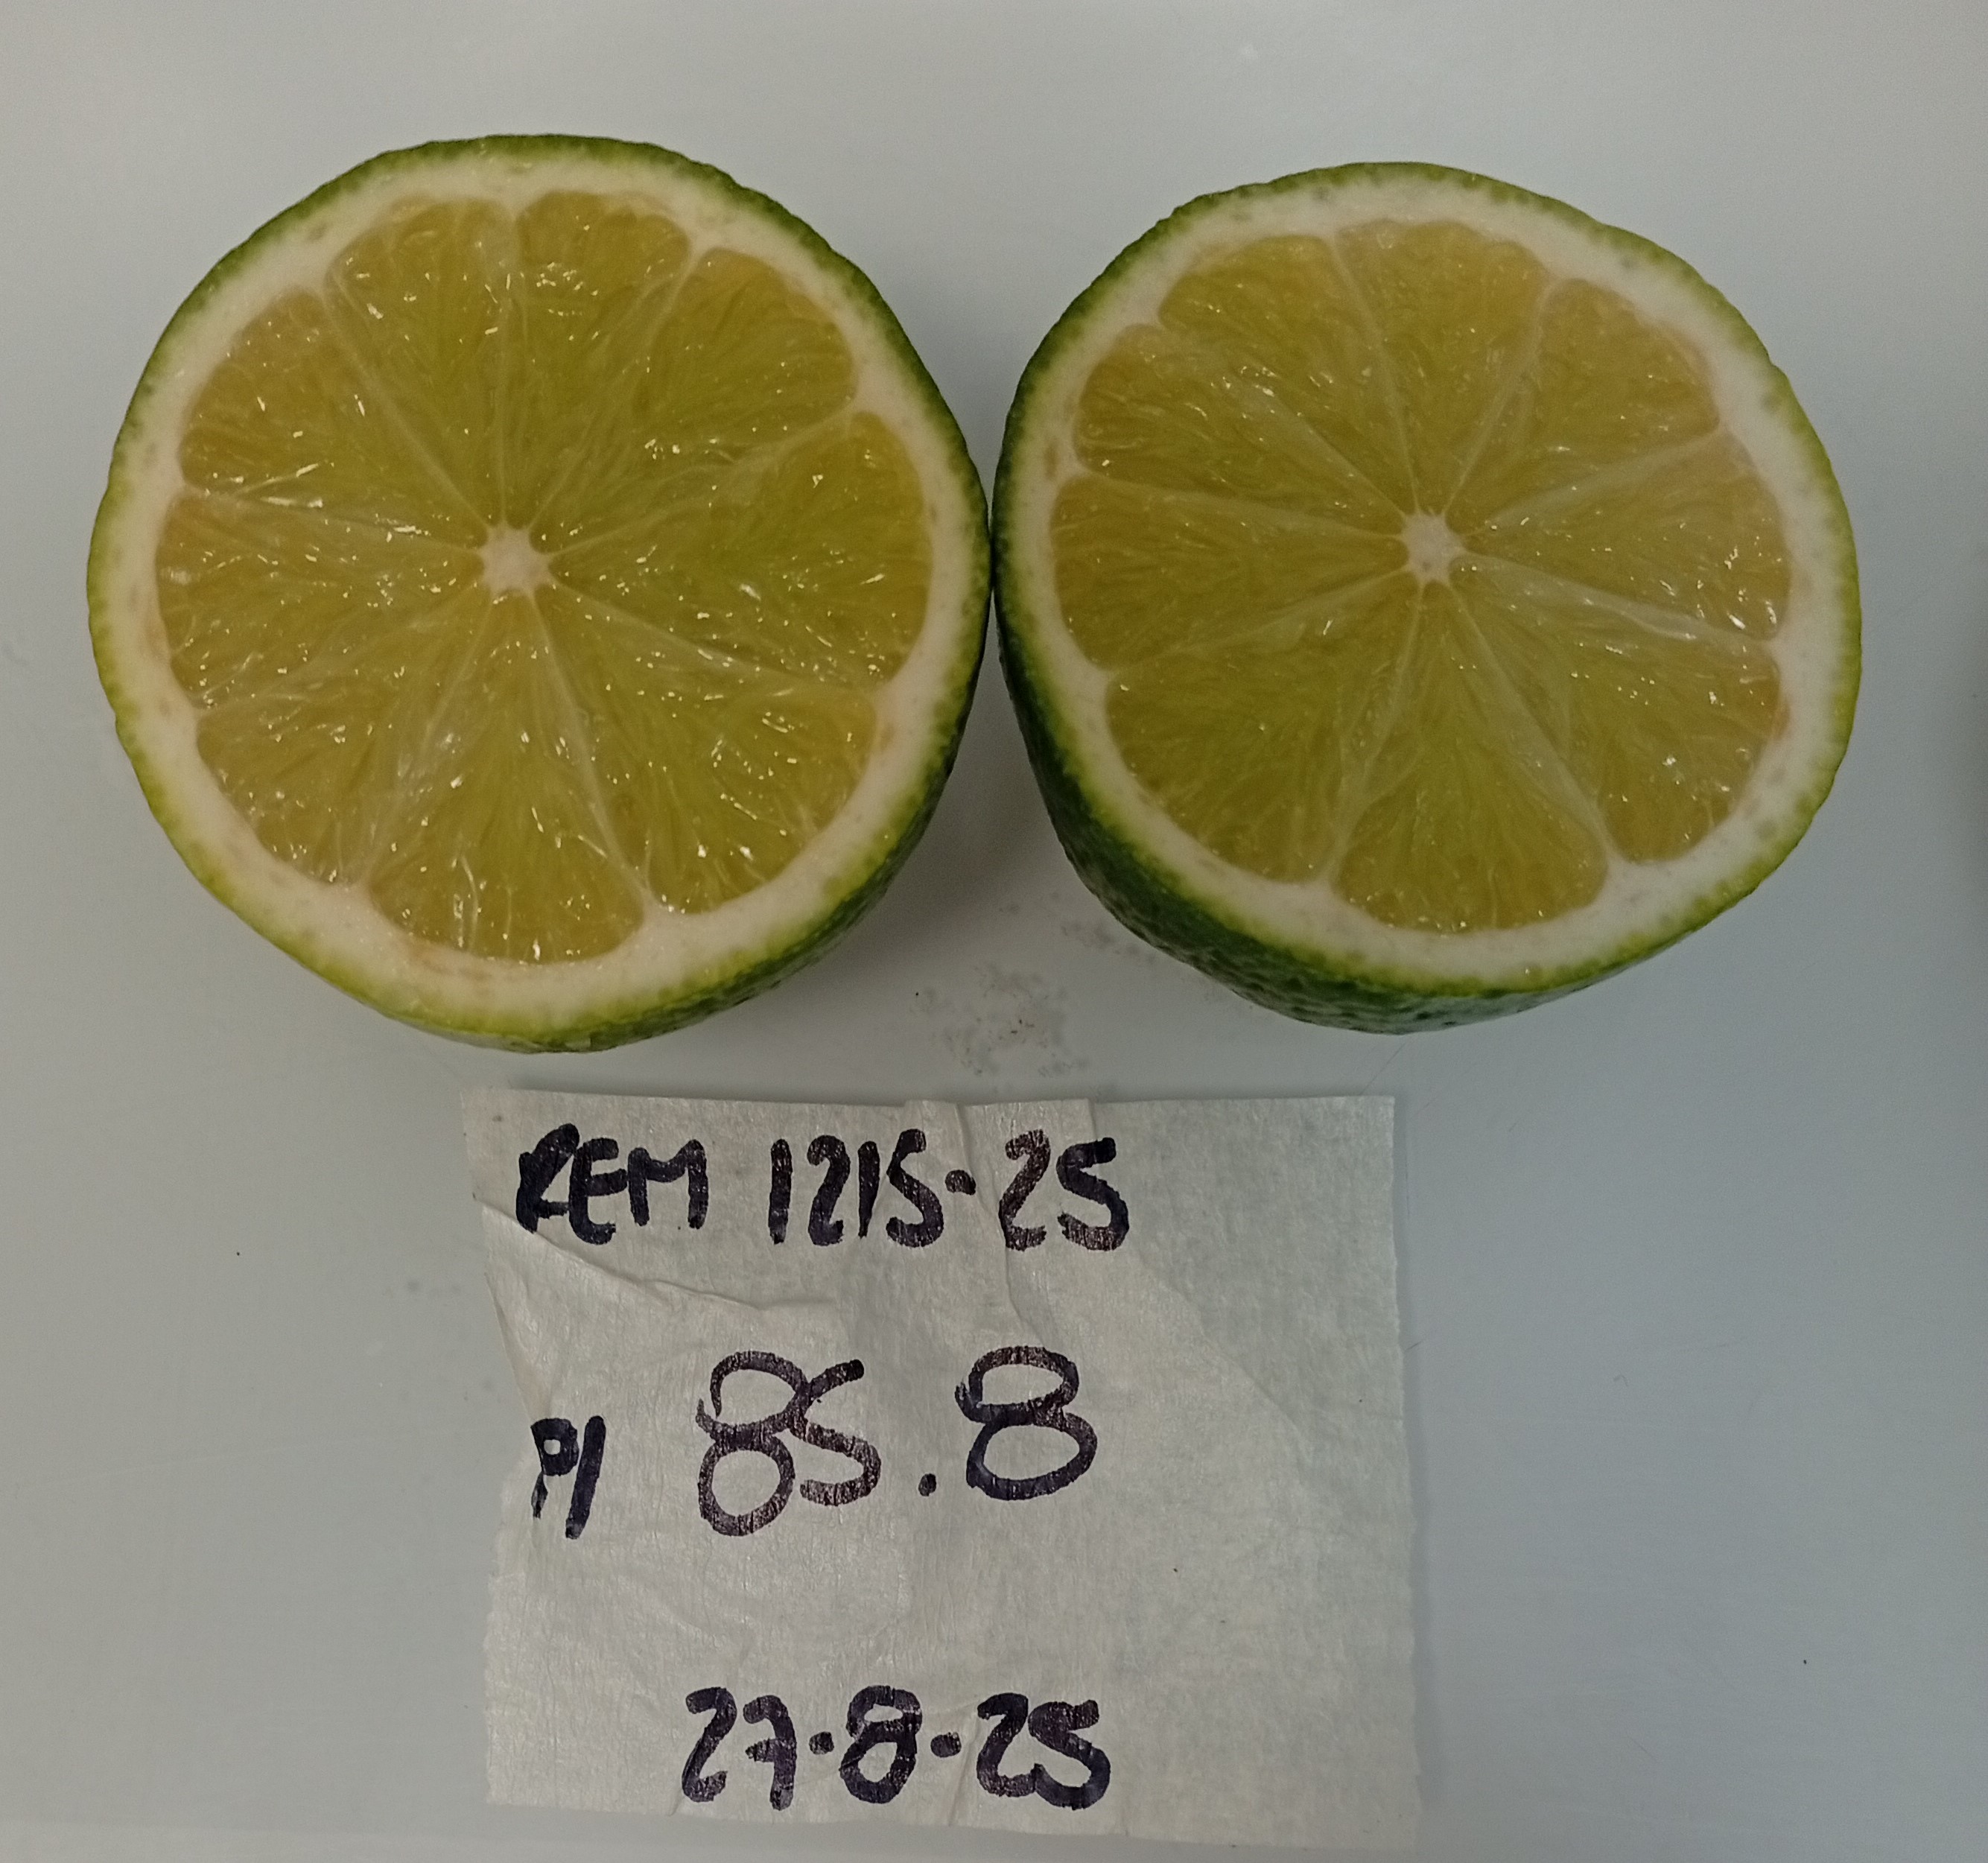 REM 1215-25
P/ 85.8
27-8-25